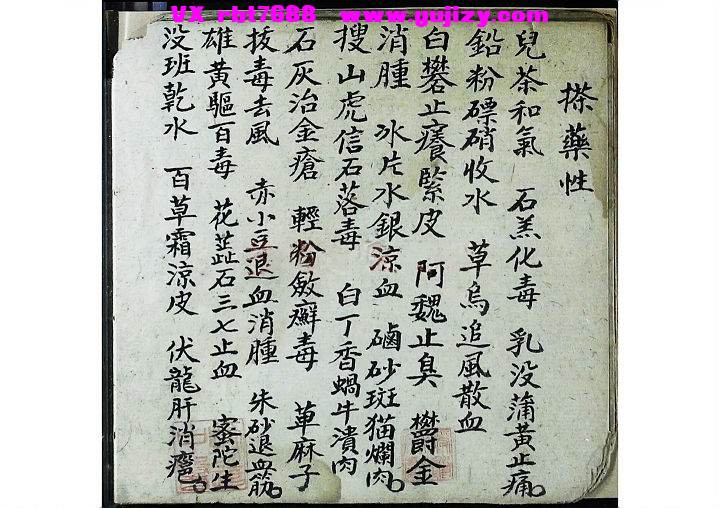 VX rbt7688 www.gojizy.com
搽藥性
兒茶和氣 石羔化毒 乳没蒲黄止痛
鉛粉硝收水 草烏追風散血
白礬止癢緊皮 阿魏止臭 欝金
消腫 氷片水銀涼血 硇砂斑猫爛肉
搜山虎信石落毒 白丁香蝸牛潰肉
石灰治金瘡 輕粉斂癬毒 萆麻子
拔毒去風 赤小豆退血消腫 朱砂退血筋
雄黄驅百毒 花蕋石三七止血 蜜陀生
没班乾水 百草霜涼皮 伏龍肝消